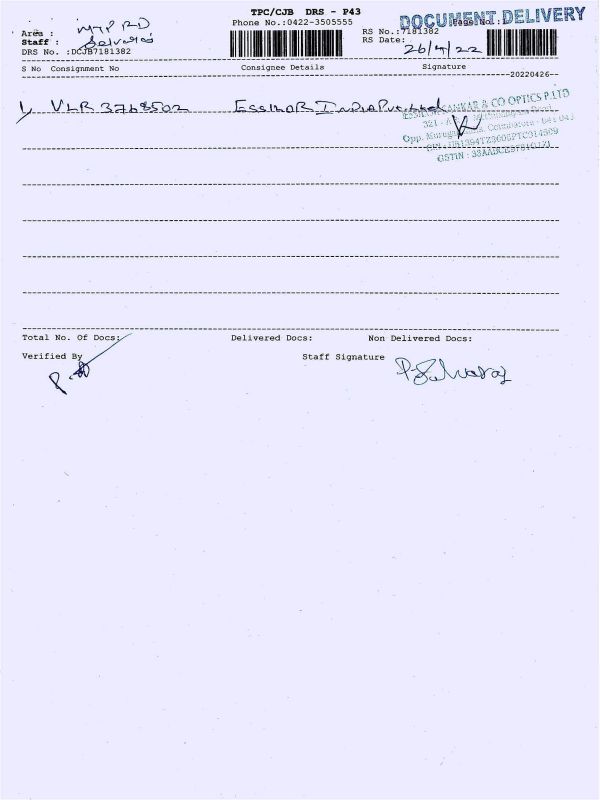 TPC/CJB DRS - P43
DOCUMENT DELIVERY
Area : MTP RD
Phone No.:0422-3505555
RS No.:7181382
Page No.:1
Staff : Selvaraj
RS Date: 26/4/22
DRS No. :DCJB7181382
S No Consignment No Consignee Details Signature
20220426
1, VLR 3768502 ESSILOR India Pvt Ltd
SANKAR & CO OPTICS P LTD
321 -
Opp. Coimbatore - 641 043
GSTIN :
Total No. Of Docs: Delivered Docs: Non Delivered Docs:
Verified By Staff Signature P. Selvaraj